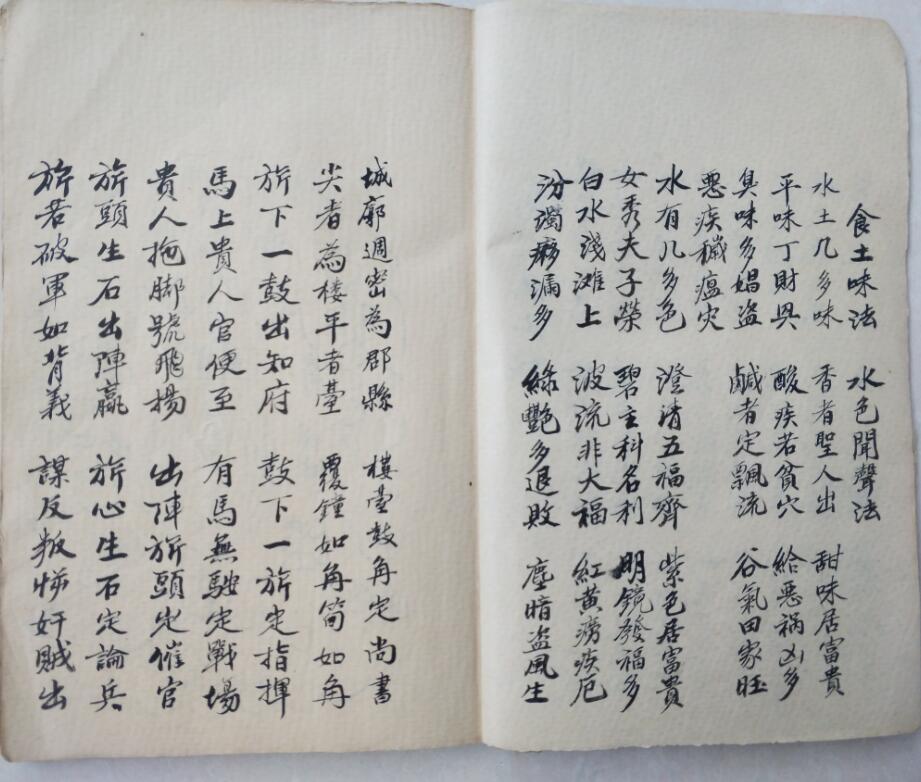 食土味法 水色聞聲法
水土几多味 香者聖人出 甜味居富貴
平味丁財興 酸疾若貧穴 給惡禍凶多
臭味多娼盗 鹹者定飄流 谷氣田家旺
惡疾穢瘟灾
水有几多色 澄清五福齊 紫色居富貴
女秀夫子榮 碧主科名利 明鏡發福多
白水淺滩上 波流非大福 紅黄痨疾厄
汾濁痨漏多 綠艷多退敗 塵暗盗風生
城廓週密為郡縣 樓臺鼓角定尚書
尖者為楼平者臺 覆鐘如角筒如角
旂下一鼓出知府 鼓下一旂定指揮
馬上貴人官便至 有馬無馳定戰場
貴人拖脚號飛揚 出陣旂頭定催官
旂頭生石出陣贏 旂心生石定論兵
旂若破軍如背義 謀反叛悖奸賊出